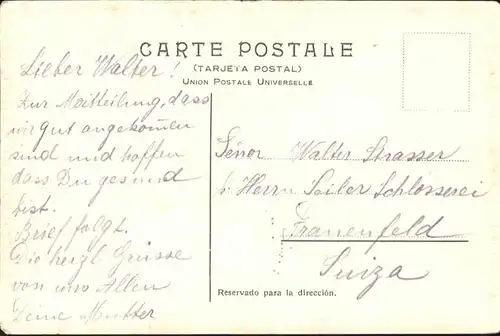 CARTE POSTALE
(TARJETA POSTAL)
UNION POSTALE UNIVERSELLE
Lieber Walter!
Zur Maitteilung, dass
wir gut angekommen
sind und hoffen
dass Du gesund
bist.
Brief folgt.
Die herzl. Grüsse
von uns Allen
Deine Mutter
Señor Walter Strasser
p. Herrn Seiler Schlosserei
Frauenfeld
Suiza
Reservado para la dirección.